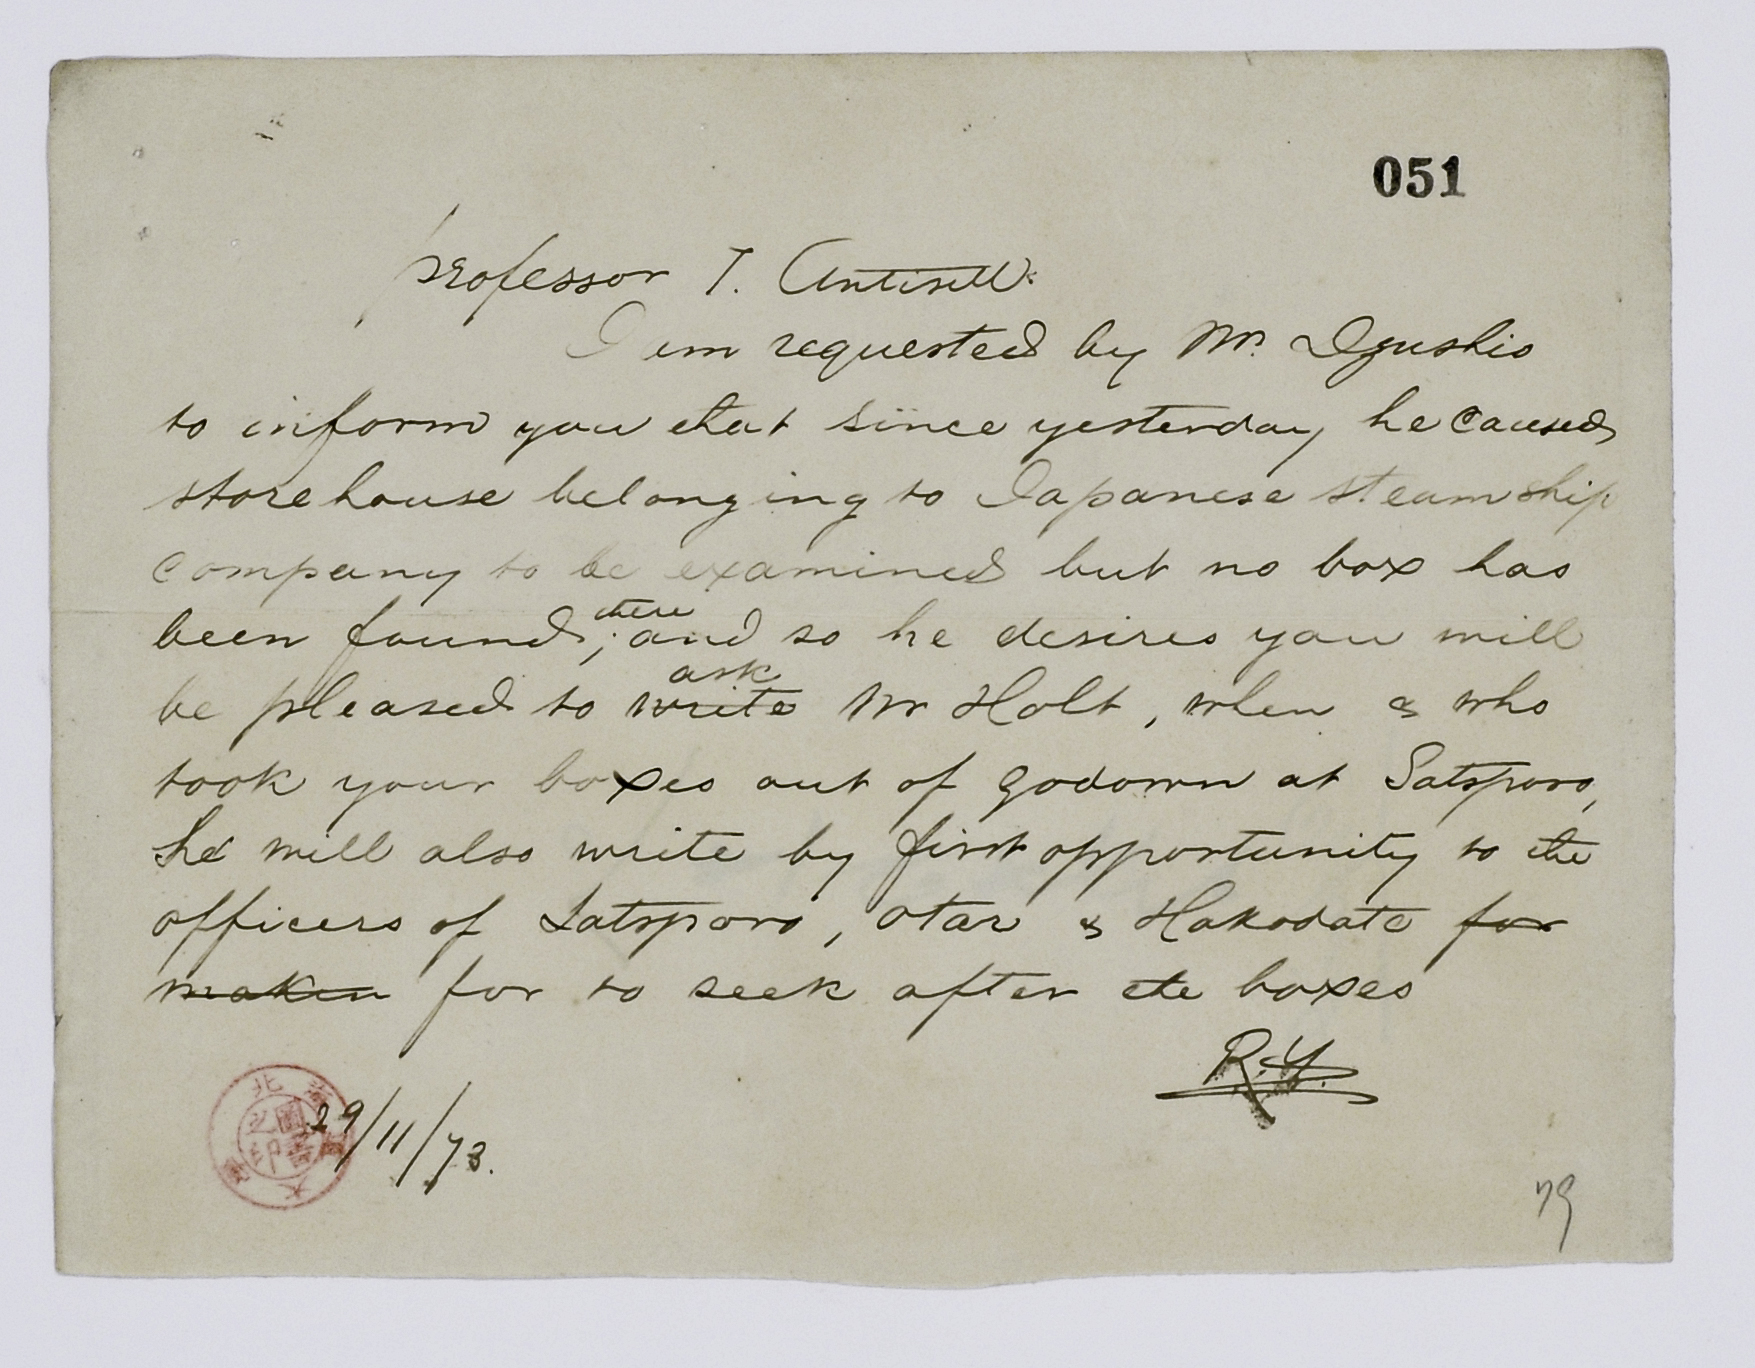 051
Professor T. Antisell.
I am requested by Mr. Igushio
to inform you that since yesterday he caused
storehouse belonging to Japanese steam ship
company to be examined but no box has
there
been found; and so he desires you will
ask
be pleased to write Mr Holt, when & who
took your boxes out of godown at Satsporo,
he will also write by first opportunity to the
officers of Satsporo, Otar & Hakodate for
maken for to seek after the boxes
R.Y.
29/11/73.
79
北海道大學圖書之印